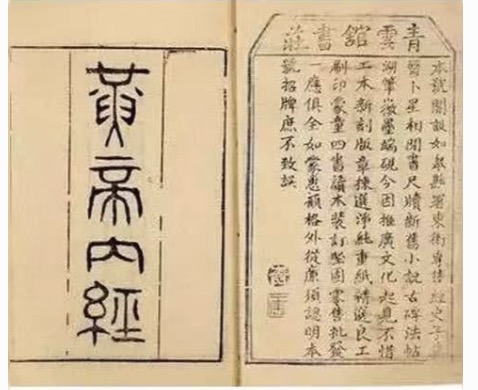 青雲館書莊
本號開設如皋縣署東街專售經史子
醫卜星相閒書尺牘斷舊小說古碑法帖
湖筆徽墨端硯今因推廣文化起見不惜
工本新刻版章揀選淨純重紙精選良工
刷印蒙童四書讀本裝訂堅固零售批發
一應俱全如蒙惠顧格外從廉須認明本
號招牌庶不致誤
黃帝內經